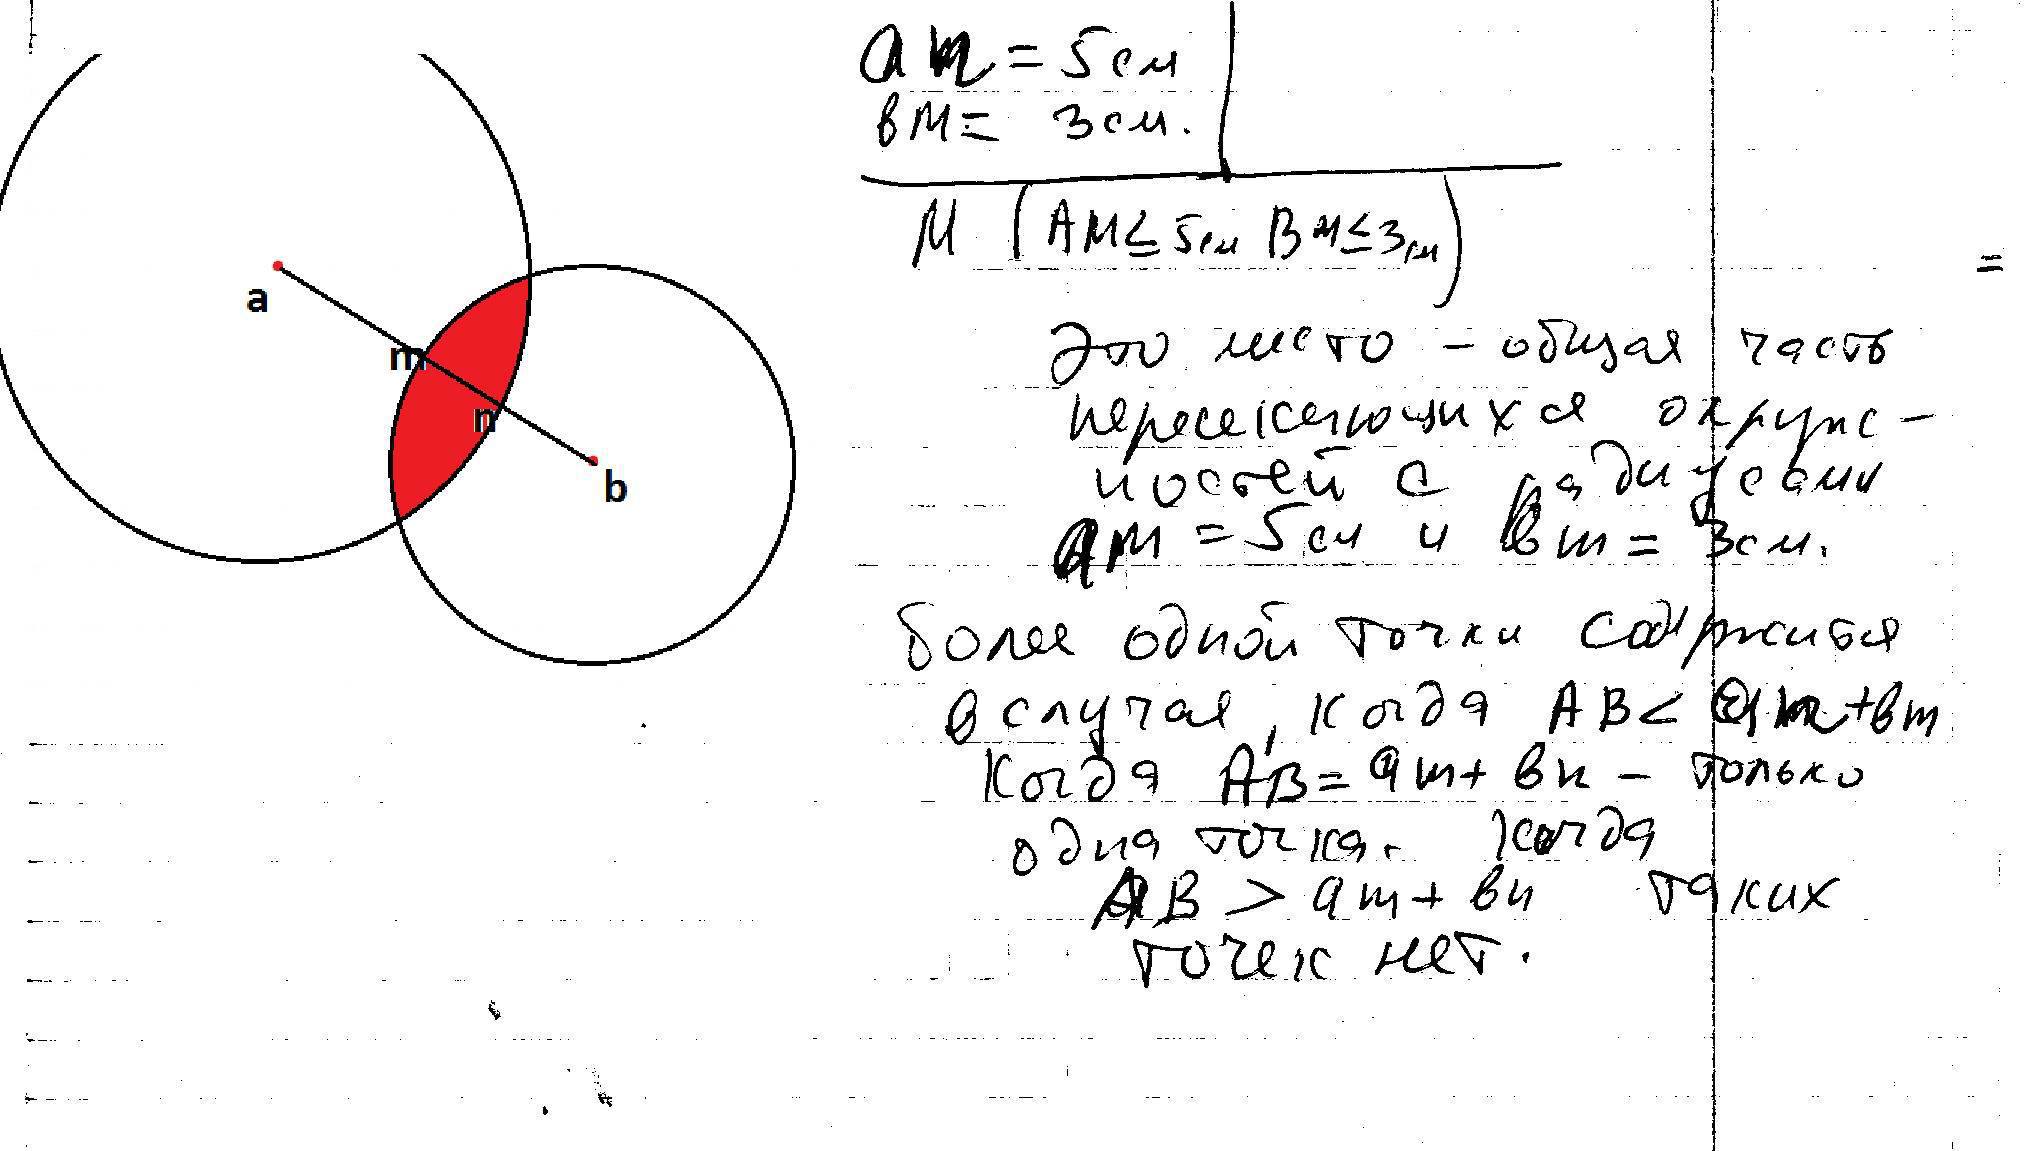 a
m
n
b
am = 5см
вм = 3см.
М (АМ ≤ 5см ВМ ≤ 3см)
=
Это место - общая часть
пересекающихся окруж-
ностей с радиусами
am = 5см и вm = 3см.
более одной точки содржится
в случая, когда АВ < am+вm
Когда АВ = am + вн - только
одна точка. Когда
АВ > am + вн таких
точек нет.